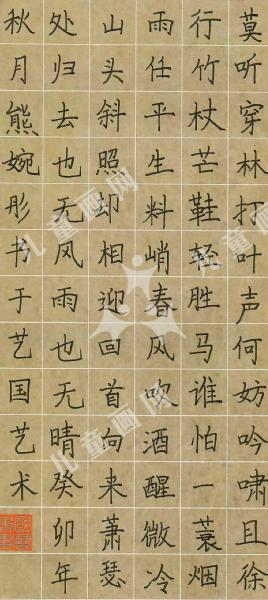 莫听穿林打叶声何妨吟啸且徐
行竹杖芒鞋轻胜马谁怕一蓑烟
雨任平生料峭春风吹酒醒微冷
山头斜照却相迎回首向来萧瑟
处归去也无风雨也无晴癸卯年
秋月熊婉彤书于艺国艺术
儿童画网
儿童画网
儿童画网
儿童画网